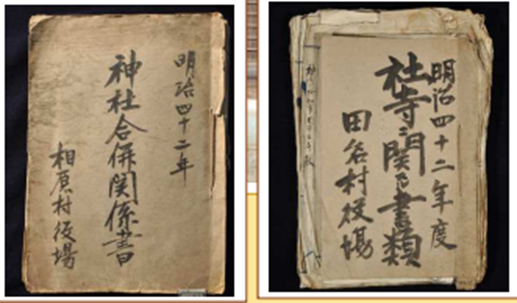 明治四十二年
神社合併関係書
相原村役場
明治四十二年度
社寺ニ関スル書類
田名村役場